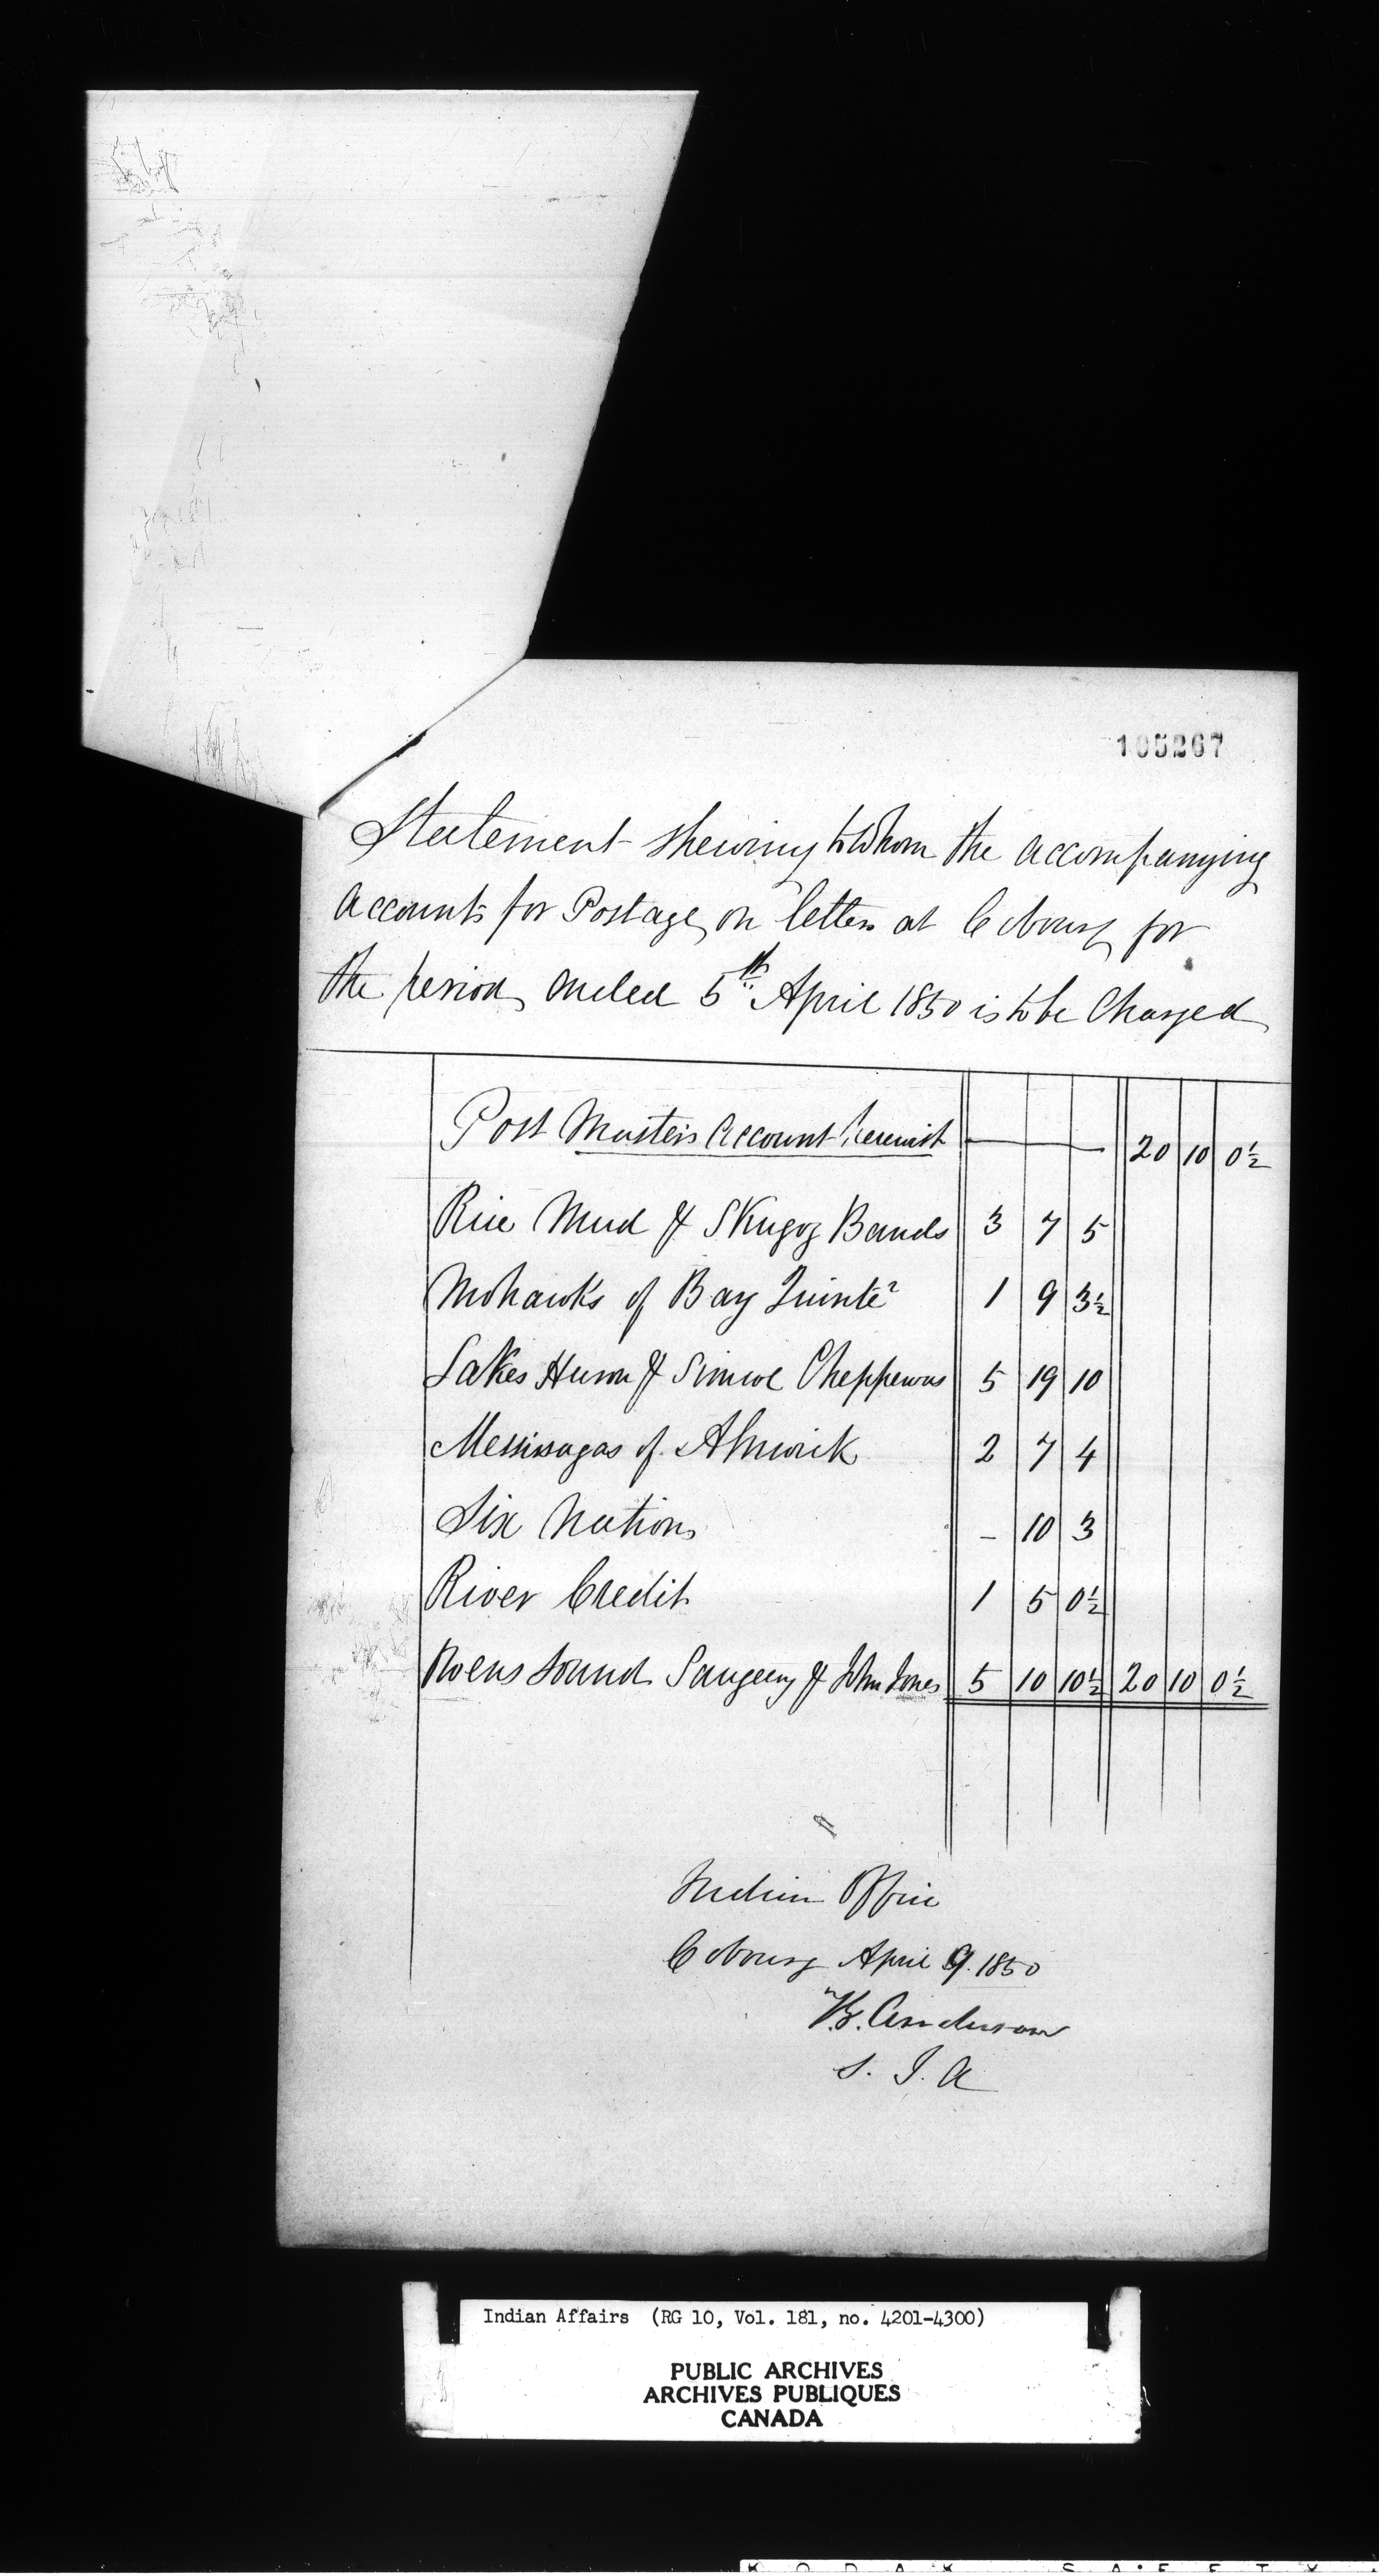 105267
Statement shewing to Whom the accompanying
accounts for Postage on letters at Cobourg for
the period ended 5th April 1850 is to be Charged
Post Masters Account herewith 20 10 0½
Rice Mud & Skugog Bands 3 7 5
Mohawks of Bay Quinté 1 9 3½
Lakes Huron & Simcoe Cheppewas 5 19 10
Messissagas of Alnwick 2 7 4
Six Nations - 10 3
River Credit 1 5 0½
Owens Sound Saugeeng & John Jones 5 10 10½ 20 10 0½
Indian Office
Cobourg April 9. 1850
Anderson
S. I. A
Indian Affairs (RG 10, Vol. 181, no. 4201-4300)
PUBLIC ARCHIVES
ARCHIVES PUBLIQUES
CANADA
KODAK SAFETY